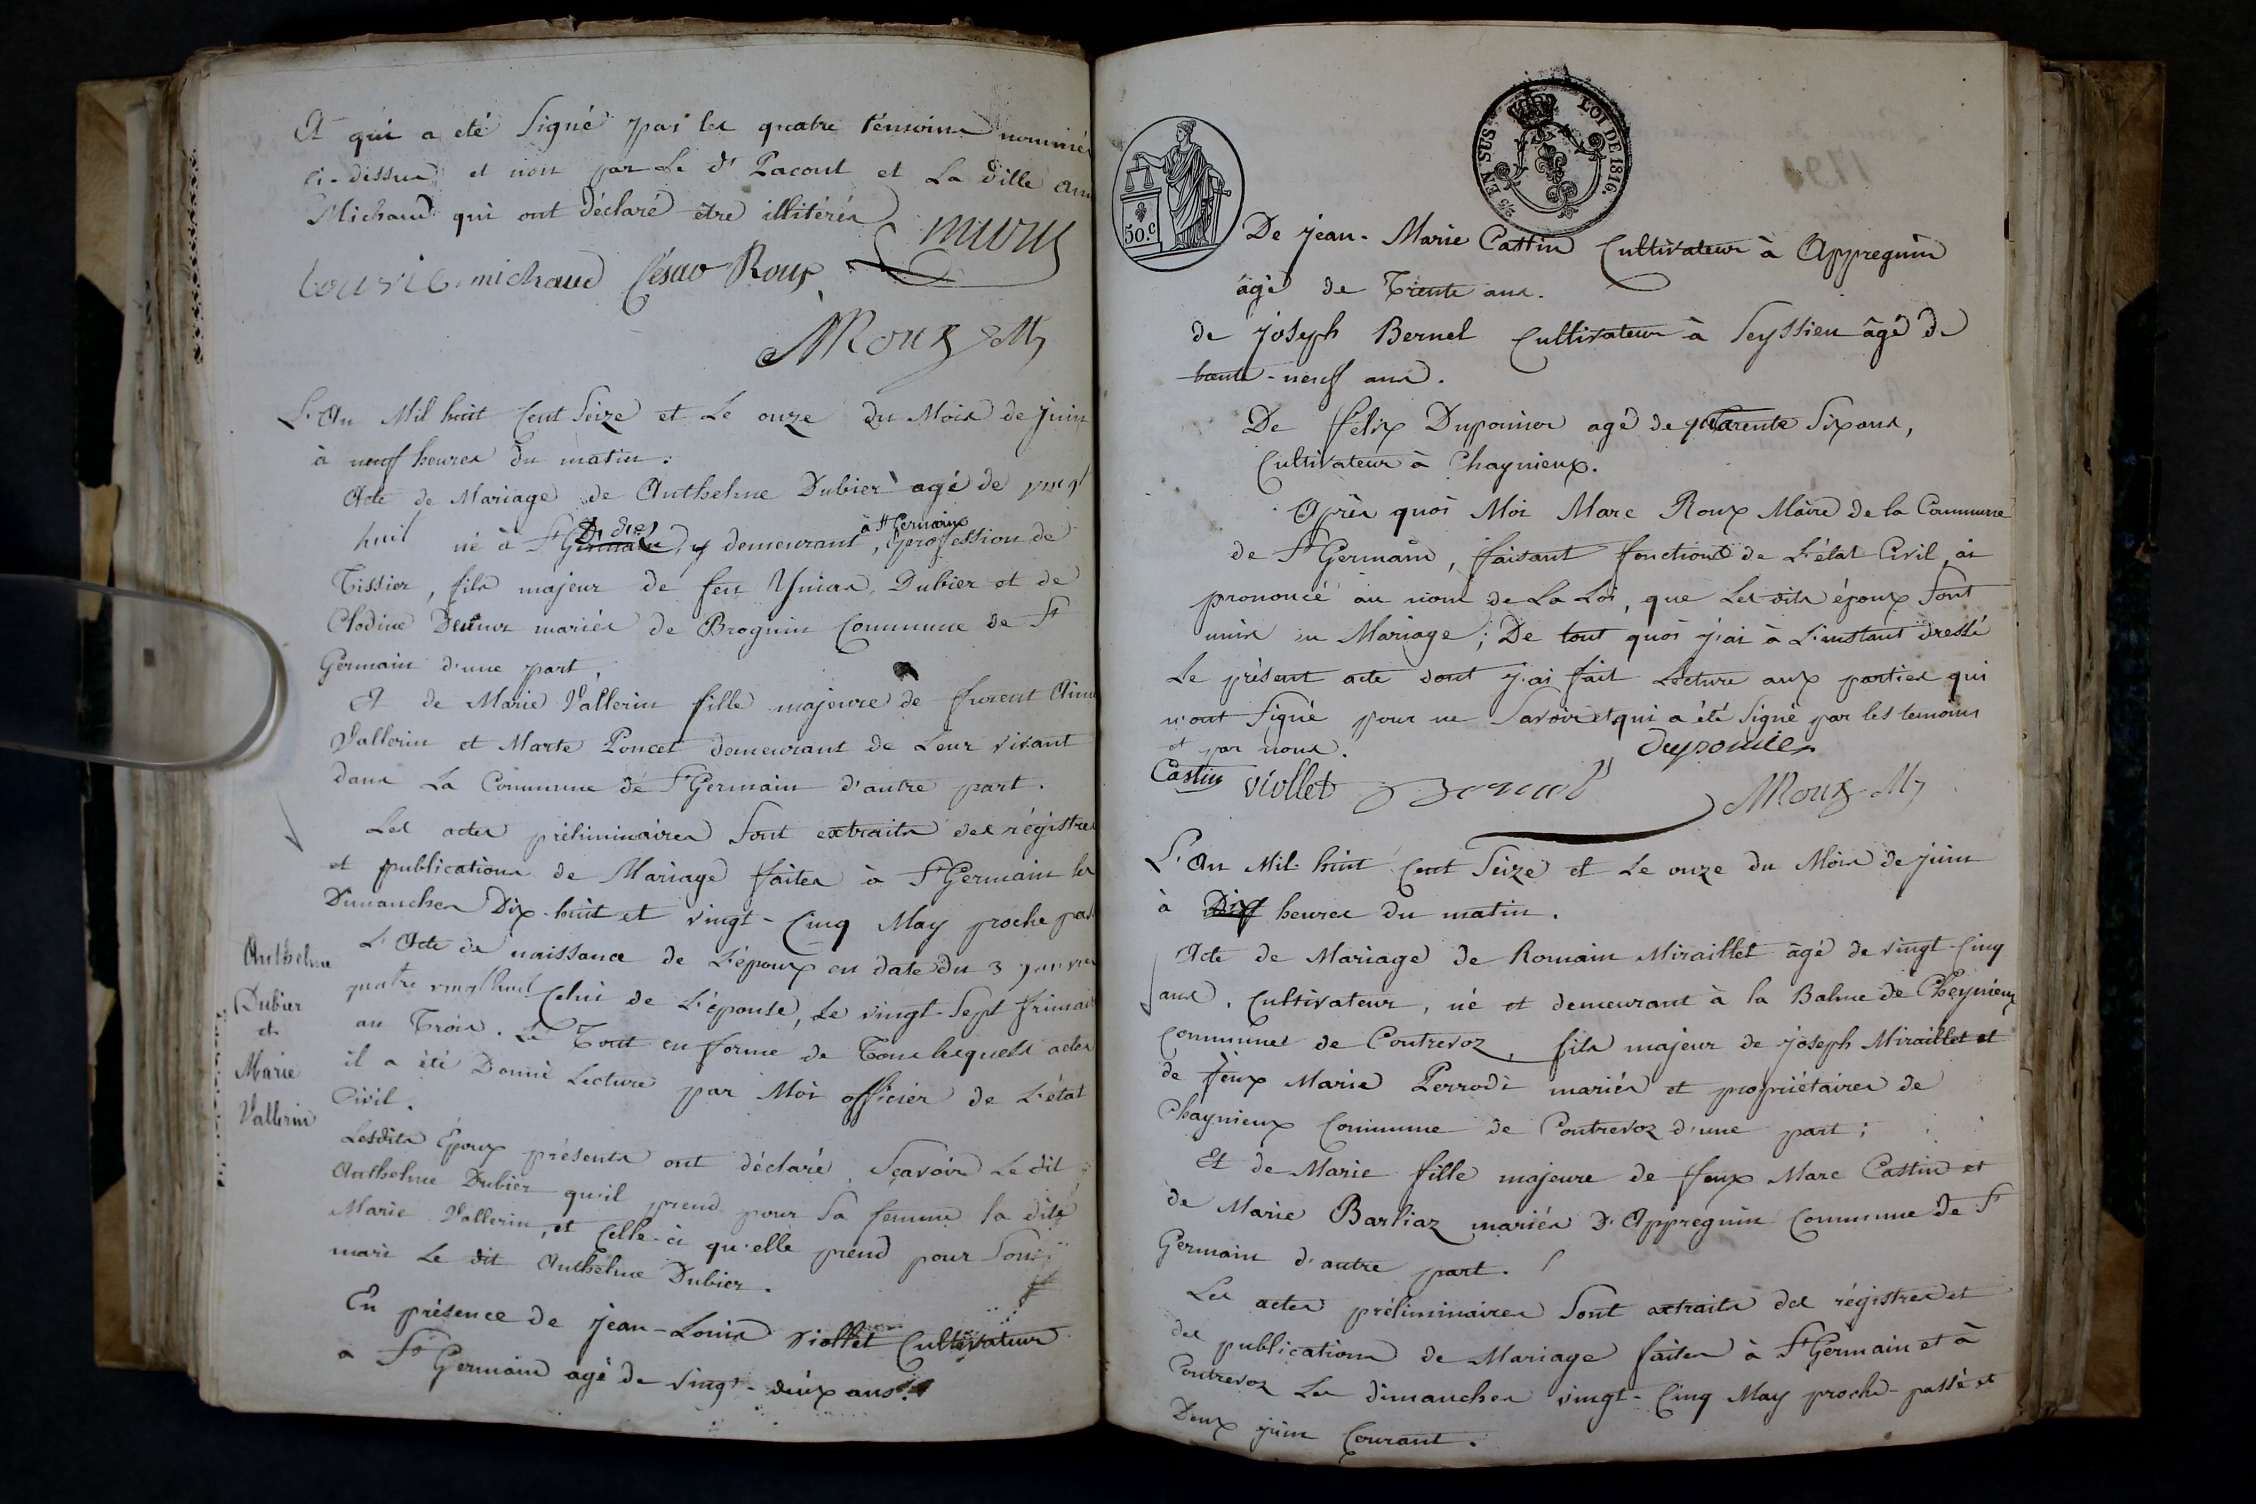 Et qui a été Signé par les quatre témoins nommés
ci-dessus et non par Le dt Pacout et La dille
Michaud qui ont déclaré être illitérés
michaud César Roux
MRoux M
L'An Mil huit Cent Seize et Le onze du Mois de juin
à neuf heures du matin.
Acte de Mariage de Anthelme Dubier agé de vingt
huit né à St Didier y demeurant à St Germain, profession de
Tissier, fils majeur de feu Dubier et de
Clodine mariés de Brognin Commune de St
Germain d'une part,
Et de Marie Vallerin fille majeure de furent
Vallerin et Marte Poncet demeurant de Leur vivant
dans La Commune de St Germain d'autre part.
Les actes préliminaires Sont extraits des régistres
et publications de Mariage faites à St Germain les
Dimanches Dix-huit et vingt-Cinq May proche passé
L'Acte de naissance de L'époux en date du 3 janvier
quatre vingt huit Celui de L'épouse, Le vingt-Sept frimaire
an Trois. Le Tout en forme de Tous lesquels actes
il a été Donné Lecture par Moi officier de L'état
Civil.
Anthelme
Dubier
et
Marie
Vallerin
Lesdits Epoux présents ont déclaré, Sçavoir Le dit
Anthelme Dubier qu'il prend pour Sa femme la dite
Marie Vallerin, et Celle-ci qu'elle prend pour Son
mari Le dit Anthelme Dubier.
En présence de jean-Louis Viollet Cultivateur
a St Germain agé de vingt-deux ans.
EN SUS LOI DE 1816.
50.c
De jean-Marie Castin Cultivateur à Appregnin
âgé de Trente ans.
de joseph Bernel Cultivateur à Seyssieu âgé de
trente-neuf ans.
De félix Duponier agé de quarente Six ans,
Cultivateur à Chaynieux.
Après quoi Moi Marc Roux Maire de la Commune
de St Germain, faisant fonctions de L'état Civil, ai
prononcé au nom de La Loi, que Les dits époux Sont
unis en Mariage; De tout quoi j'ai à L'instant dressé
Le présent acte dont j'ai fait Lecture aux parties qui
n'ont Signé pour ne Savoir et qui a été Signé par les temoins
et par nous.
Duponier
Castin viollet MRoux M
L'An Mil huit Cent Seize et Le onze du Mois de juin
à Dix heures du matin.
Acte de Mariage de Romain Miraillet âgé de vingt-Cinq
ans. Cultivateur, né et demeurant à la Balme de Cheynieux
Commune de Contrevoz, fils majeur de joseph Miraillet et
de feux Marie Perrodi mariés et propriétaires de
Chaynieux Commune de Contrevoz d'une part;
Et de Marie fille majeure de feux Marc Castin et
de Marie Barliaz mariés D'Appregnin Commune de St
Germain d'autre part.
Les actes préliminaires Sont extraits des régistres et
des publications de Mariage faites à St Germain et à
Contrevoz Les dimanches vingt-Cinq May proche-passé et
Deux juin Courant.